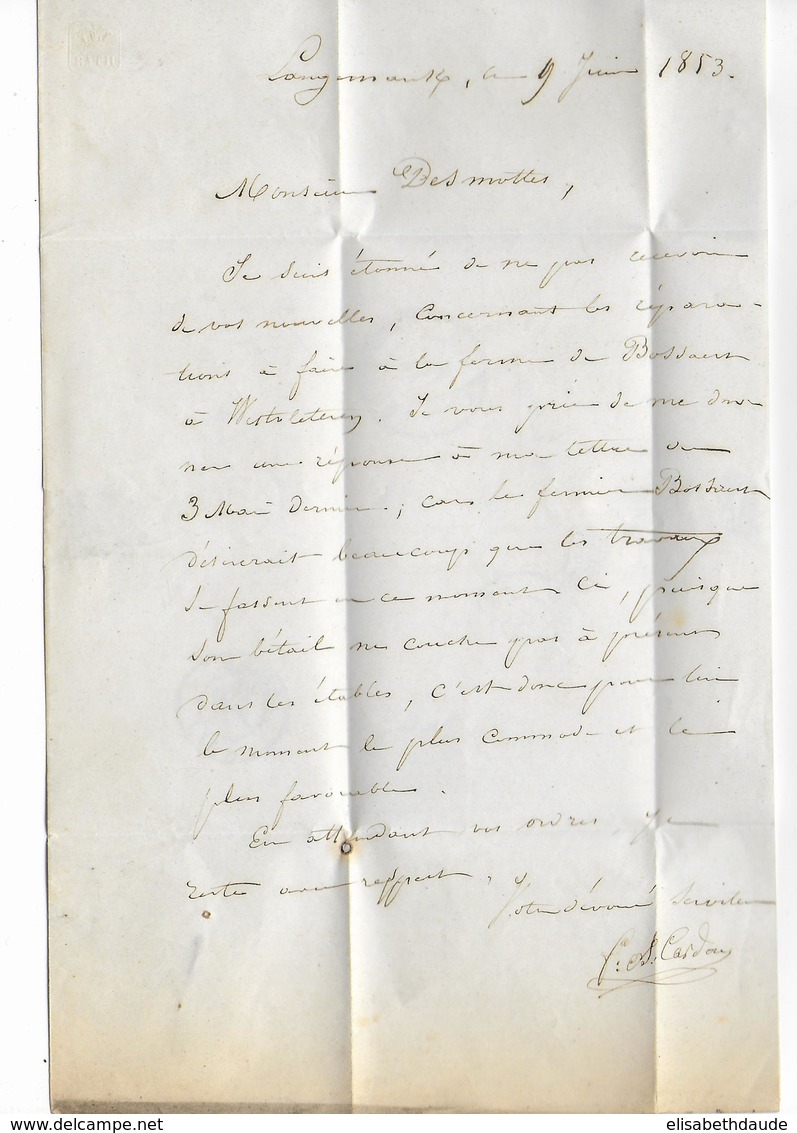 Langemarck, ce 9 Juin 1853.
Monsieur Desmottes,
Je suis étonné de ne pas recevoir
de vos nouvelles, Concernant les répara-
tions à faire à la ferme de Bossaert
à Westvleteren. Je vous prie de me don-
ner une réponse à ma lettre du
3 Mai dernier; car le fermier Bossaert
désirerait beaucoup que les travaux
se fassent en ce moment ci, puisque
son bétail ne couche pas à présent
dans les étables, c'est donc pour lui
le moment le plus commode et le
plus favorable.
En attendant vos ordres, je
reste avec respect,
Votre dévoué serviteur
Cardon
delcampe.net
elisabethdaude